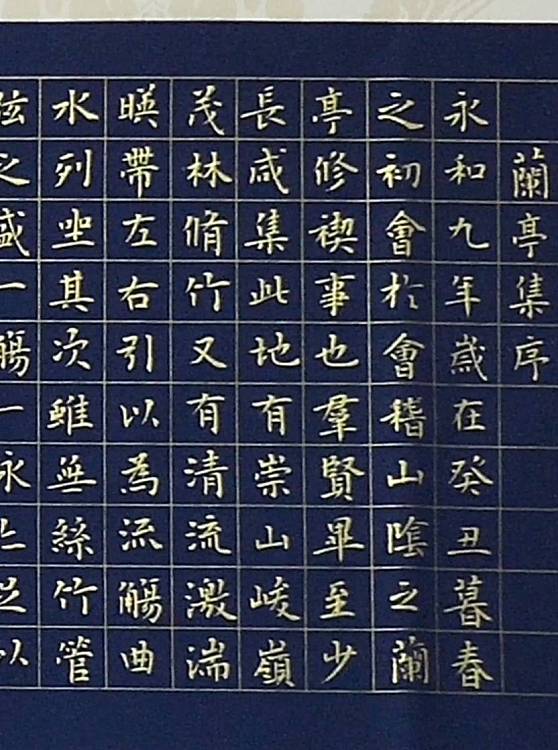 蘭亭集序
永和九年歲在癸丑暮春
之初會於會稽山陰之蘭
亭修禊事也羣賢畢至少
長咸集此地有崇山峻嶺
茂林脩竹又有清流激湍
暎帶左右引以為流觴曲
水列坐其次雖無絲竹管
弦之盛一觴一詠以